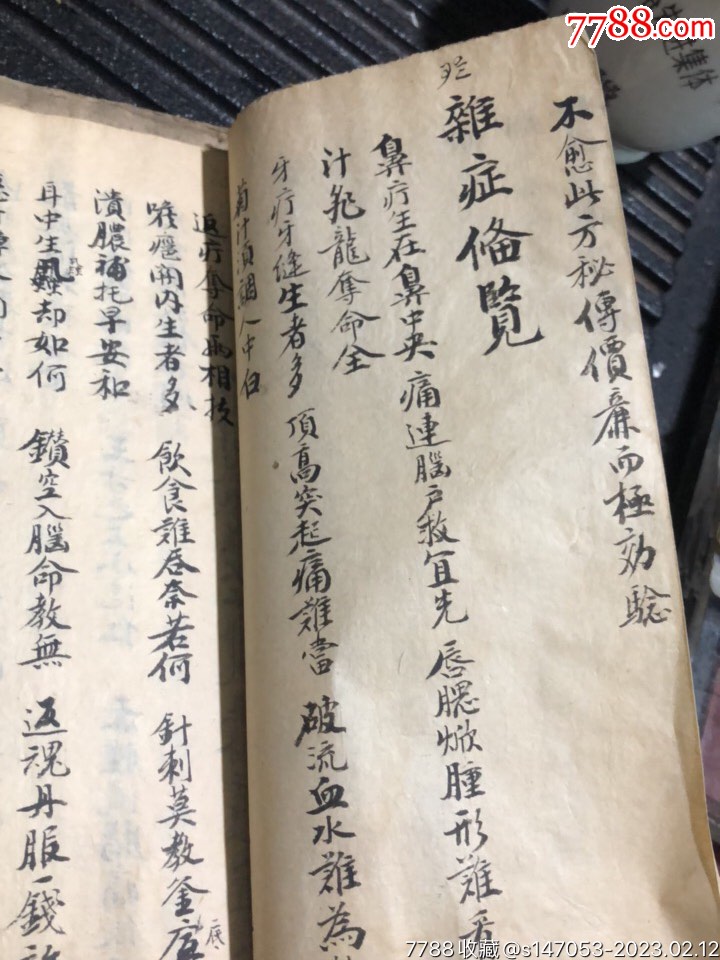 7788.com
集体
不愈此方秘傳價廉而極効驗
雜症俻覽
鼻疗生在鼻中央 痛連腦户救宜先 唇腮焮腫形難看
汁飛龍奪命全
牙疗牙縫生者多 頂高突起痛難當 破流血水難為
菊汁須調人中白
返疗奪命
喉癰開内生者多 飲食難吞奈若何 針刺莫教釜底
潰膿補托早安和
耳中生却如何 鑽空入腦命教無 返魂丹服一錢
7788收藏@s147053-2023.02.12